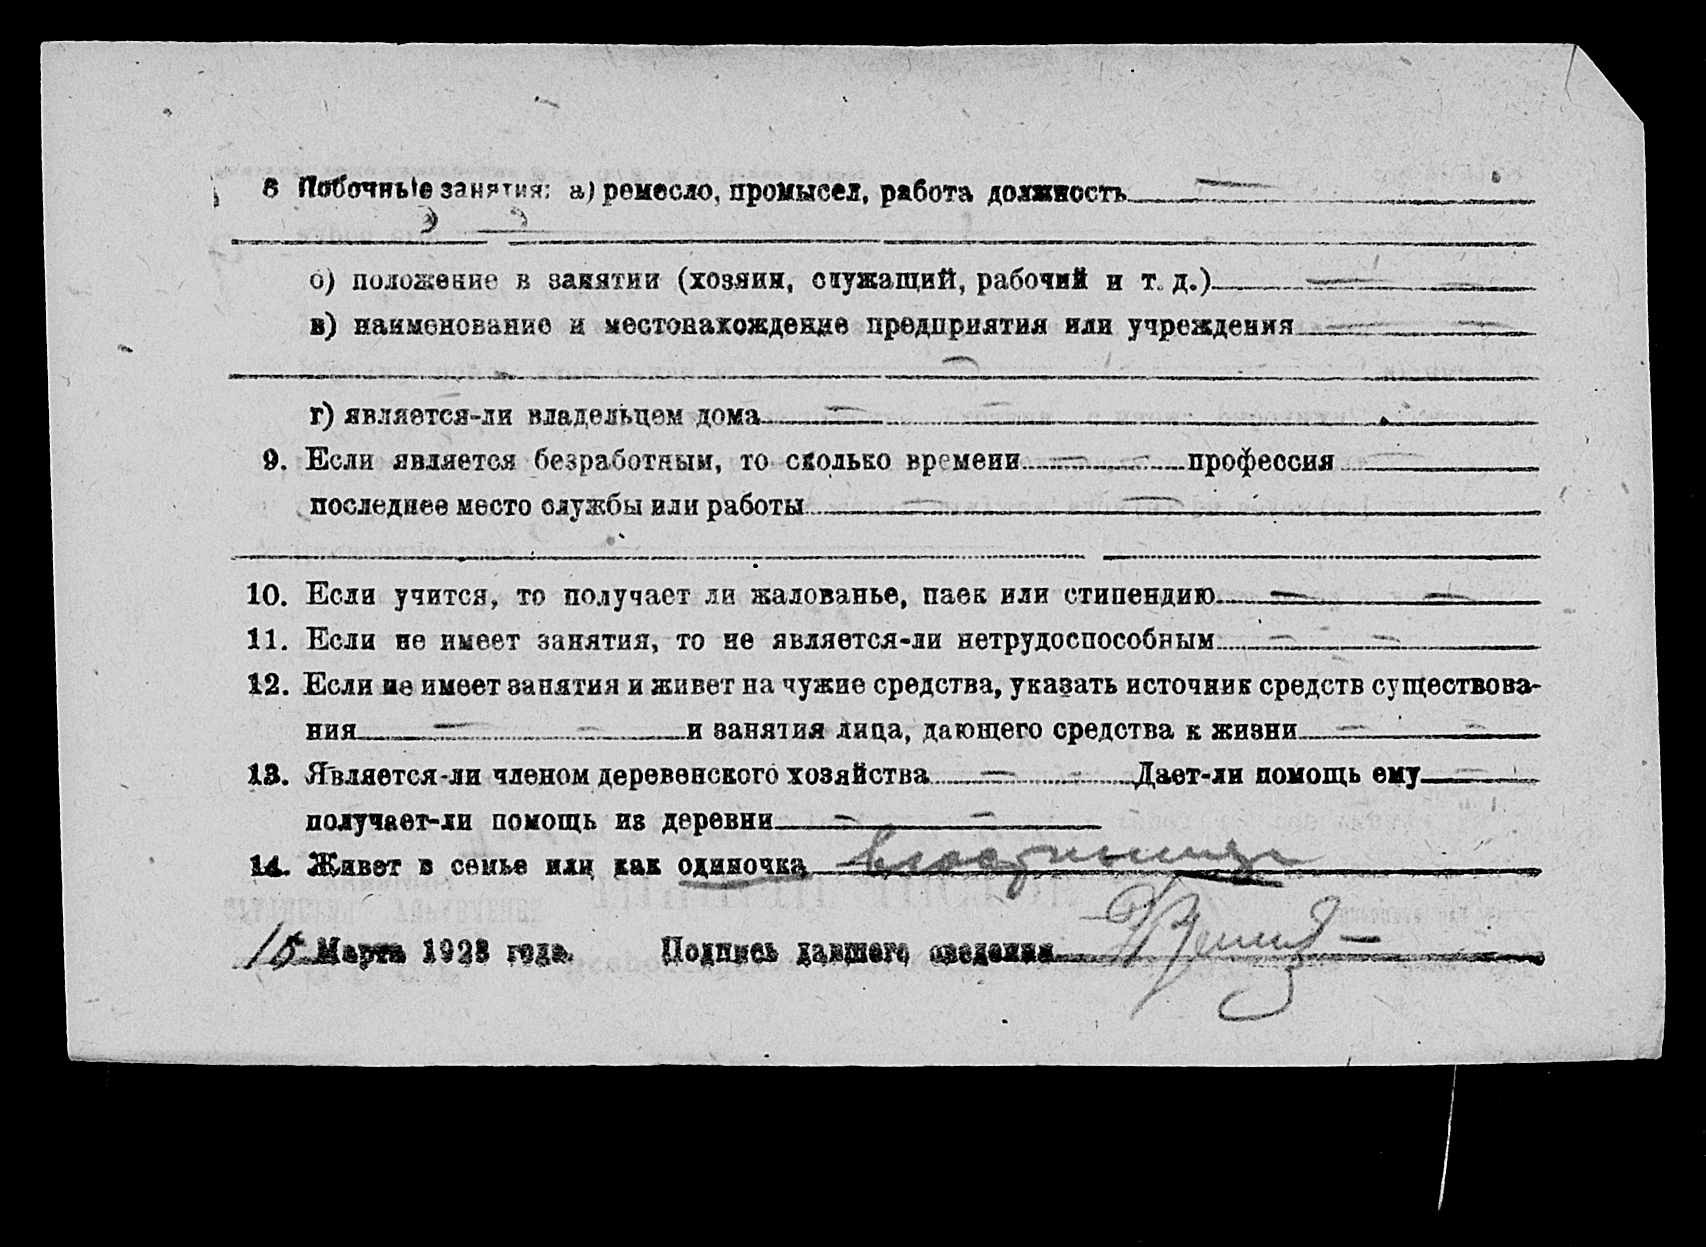 8 Побочные занятия: а) ремесло, промысел, работа должность
б) положение в занятии (хозяин, служащий, рабочий и т. д.)
в) наименование и местонахождение предприятия или учреждения
г) является-ли владельцем дома
9. Если является безработным, то сколько времени профессия
последнее место службы или работы
10. Если учится, то получает ли жалованье, паек или стипендию
11. Если не имеет занятия, то не является-ли нетрудоспособным
12. Если не имеет занятия и живет на чужие средства, указать источник средств существова-
ния и занятия лица, дающего средства к жизни
13. Является-ли членом деревенского хозяйства Дает-ли помощь ему
получает-ли помощь из деревни
14. Живет в семье или как одиночка
15 Марта 1923 года. Подпись давшего сведения